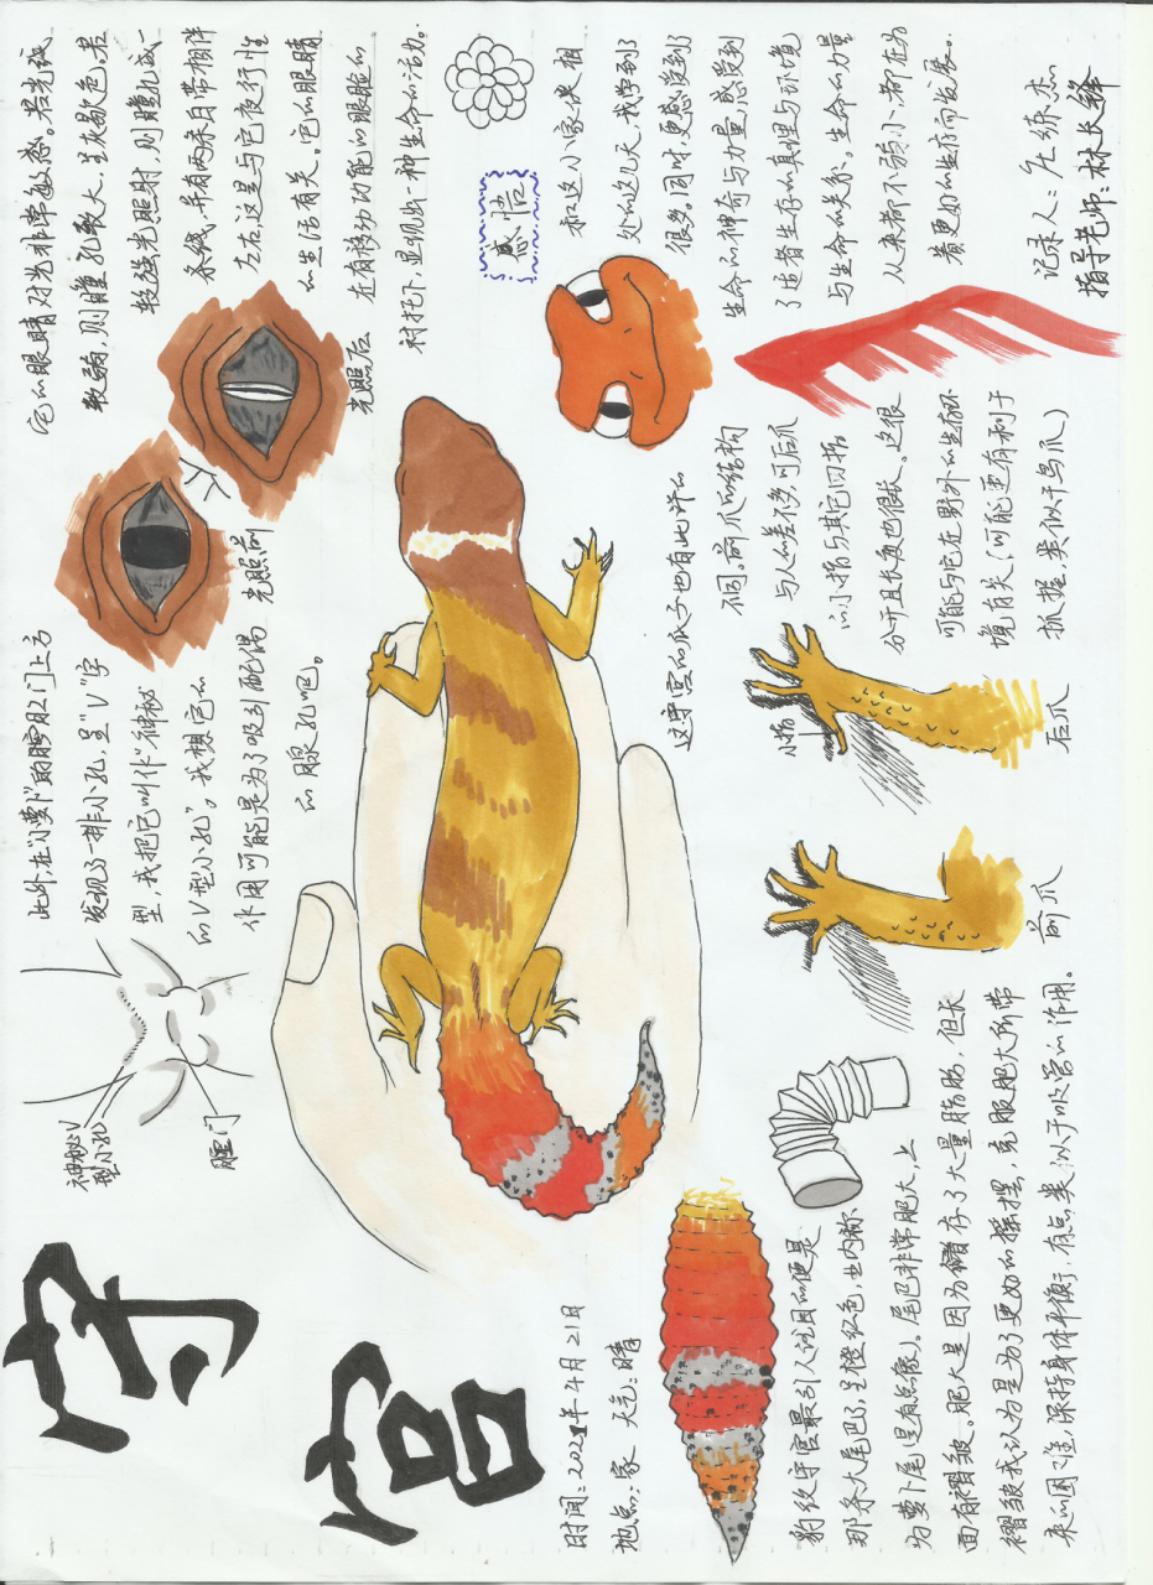 守宫
时间:2021年4月21日
地点:家 天气:晴
豹纹守宫最引人注目的便是
那条大尾巴了,呈橙红色,业内称
为萝卜尾(是有点像)。尾巴非常肥大,上
面有褶皱。肥大是因为储存了大量脂肪,但长
褶皱我认为是为了更好的摇摆,克服肥大所带
来的困难,保持身体平衡,有点类似于吸管的作用。
神秘V
型小孔
肛门
此外,在“小萝卜”的肛门上方
发现了一排小孔,呈“V”字
型,我把它叫作“神秘
的V型小孔”。我想它的
作用可能是为了吸引配偶
的腺孔吧。
光照前
光照后
它的眼睛对光非常敏感。若光线
较弱,则瞳孔较大,呈灰褐色。若
较强光照射,则瞳孔成一
条线,并有两条白带相伴
左右,这是与它夜行性
的生活有关。它的眼睛
在有移动功能的眼睑的
衬托下,显现出一种生命的活力。
前爪
小指
后爪
这守宫的爪子也有些许的
不同。前爪的结构
与人的差不多,可后爪
的小指与其它四指
分开且长度也很大。这很
可能与它在野外的生活环
境有关(可能更有利于
抓握,类似于鸟爪)
感悟
和这小家伙相
处的这几天,我学到了
很多。同时,更感受到了
生命的神奇与力量,感受到
了适者生存的真理与环境
与生命的关系。生命的力量
从来都不弱小,都在为
着更好的生存而发展。
记录人:庄练杰
指导老师:林长锋